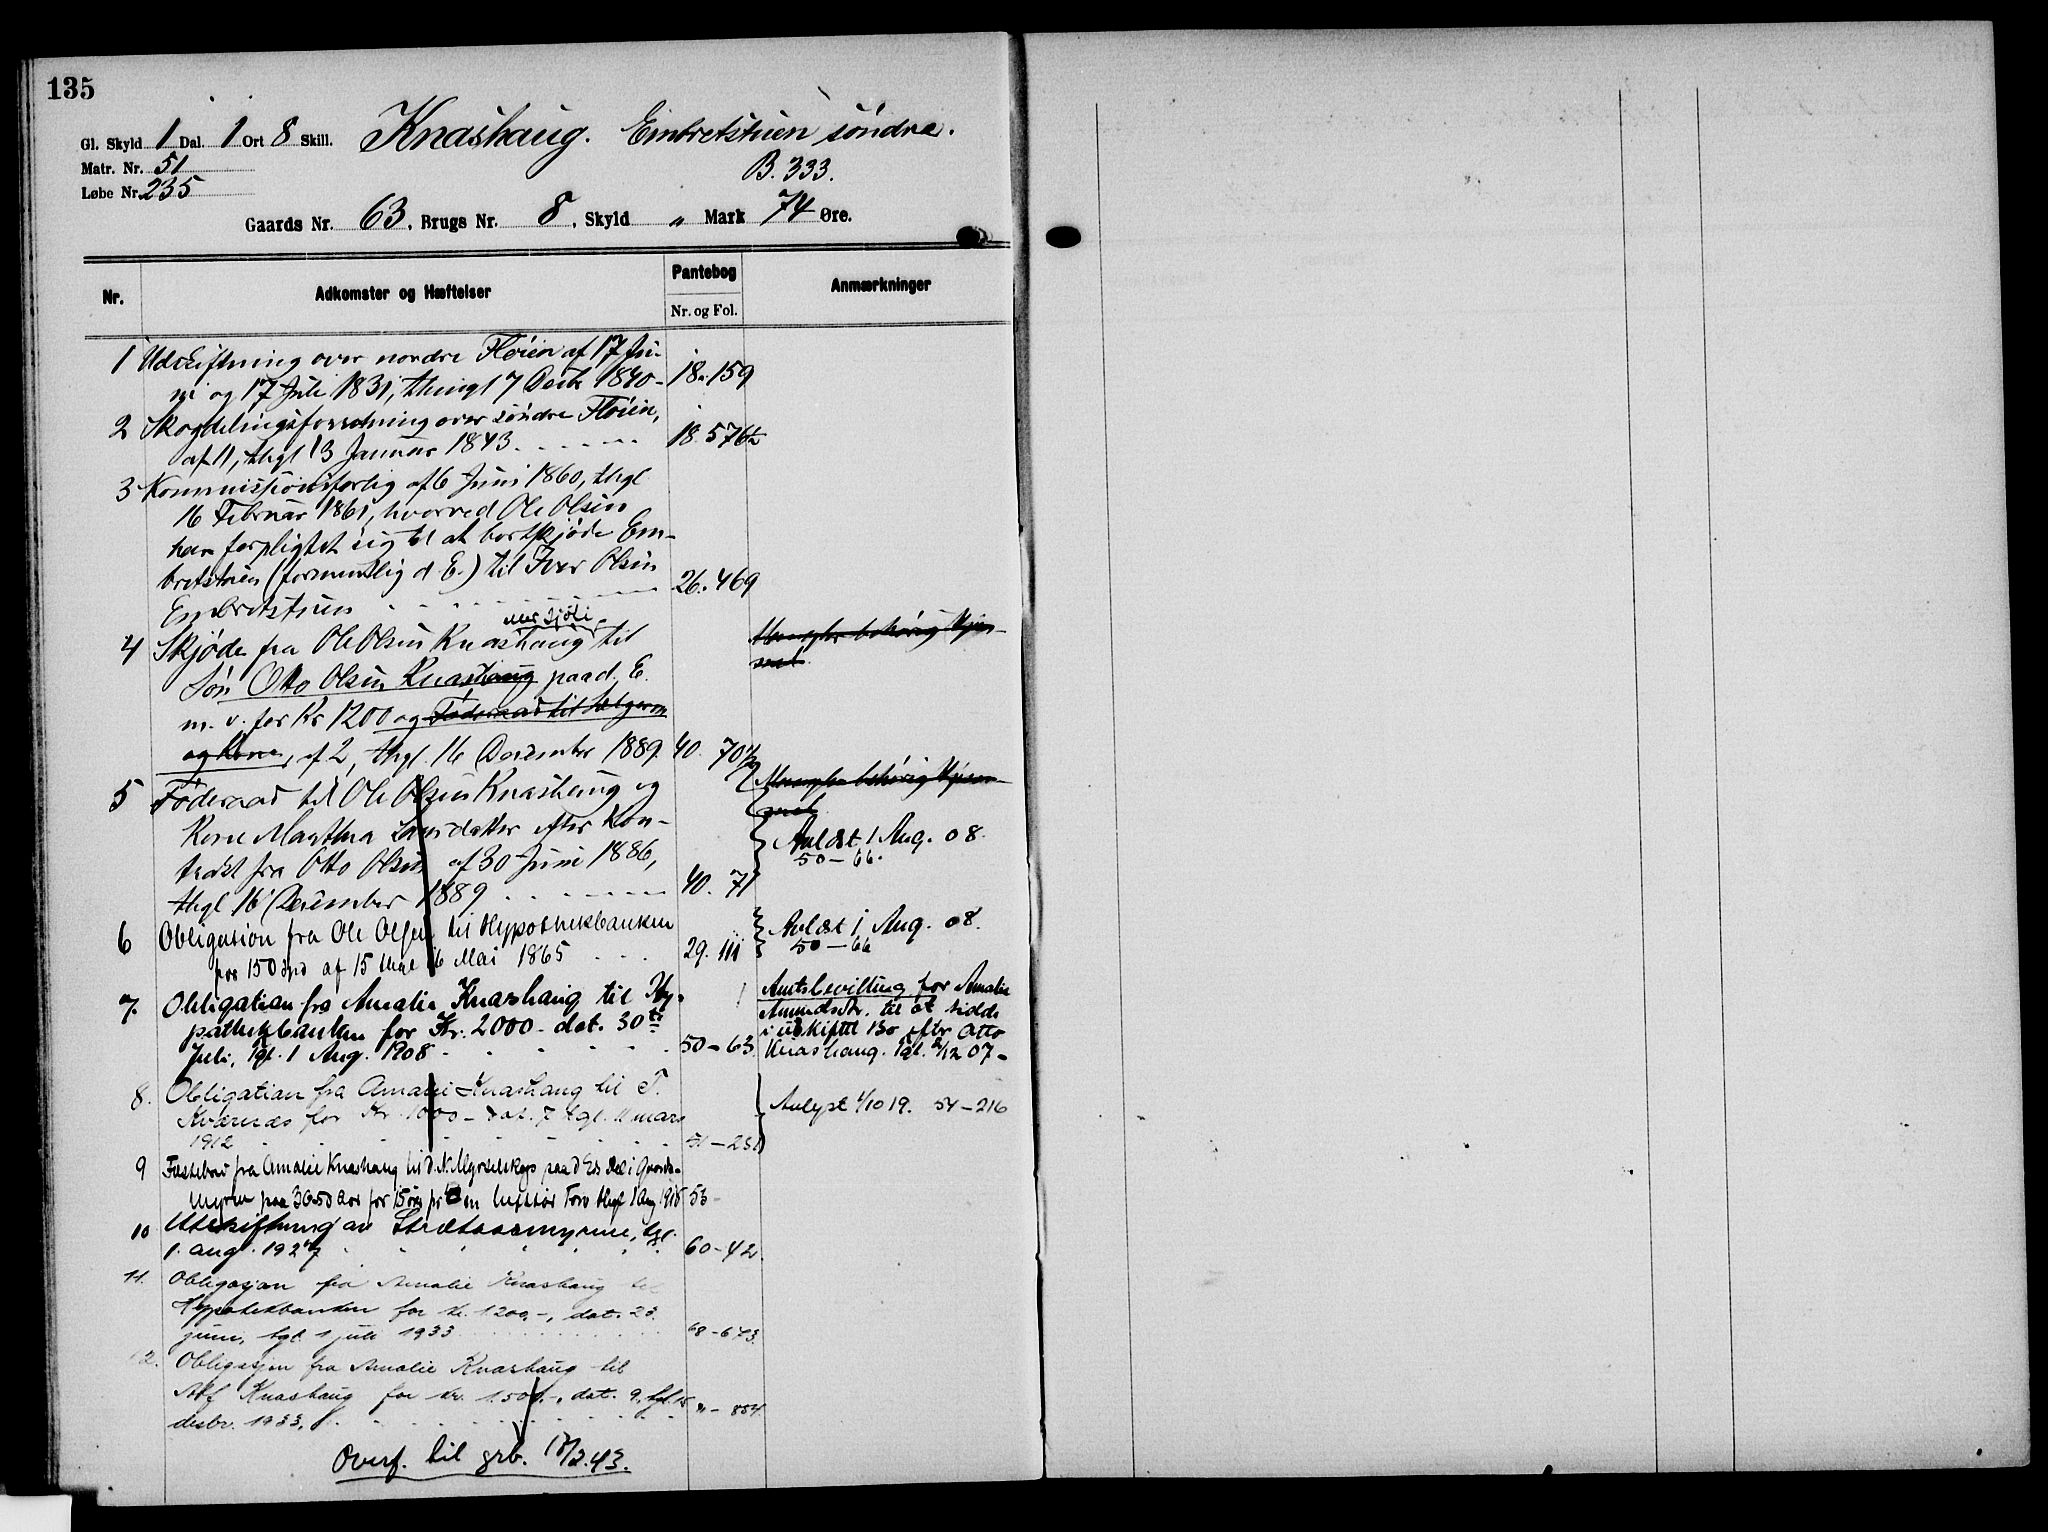 135
Gl. Skyld 1 Dal. 1 Ort 8 Skill. Knashaug. Embretstuen søndre.
Matr. Nr. 51 B. 333.
Løbe Nr. 235
Gaards Nr. 63, Brugs Nr. 8, Skyld " Mark 74 Øre.
Nr. Adkomster og Hæftelser Pantebog Nr. og Fol. Anmærkninger
1 Udskiftning over nordre Fløien af 17 Ju-
ni og 17 Juli 1831, thingl 7 Decbr 1840 - 18. 159
2 Skogdelingsforretning over søndre Fløien,
af 11, thgl 13 Januar 1843 . . . 18. 576
3 Kommissionsforlig af 6 Juni 1860, thgl
16 Februar 1861, hvorved Ole Olsen
har forpligtet sig til at bortskjøde Em-
bretstuen (formentlig d E.) til Iver Olsen
Embretstuen . . . 26. 469
4 Skjøde fra Ole Olsen Knashaug til
Søn Otto Olsen Knashaug paa d. E.
m. v. for Kr 1200 og Føderaad til Sælgeren
og Kone, af 2, thgl. 16 December 1889. 40. 70
Mangler behørig Hjem-
mel.
5 Føderaad til Ole Olsen Knashaug og
Kone Marthea Larsdatter efter Kon-
trakt fra Otto Olsen af 30 Juni 1886,
thgl 16 December 1889 . . . 40. 71
Mangler behørig Hjem-
mel.
Avlæst 1 Aug. 08.
50 - 66.
6 Obligation fra Ole Olsen til Hypothekbanken
for 150 Spd af 15 thgl 16 Mai 1865 . . . 29. 111
Avlæst 1 Aug. 08.
50 - 66
7. Obligation fra Amalie Knashaug til Hy-
pothekbanken for Kr. 2000 - dat. 30te
Juli, tgl. 1 Aug. 1908 . . . 50 - 63
Amtsbevilling for Amalie
Amundsdtr. til at sidde
i uskiftet Bo efter Otto
Knashaug. tgl. 2/12 07 -
8. Obligation fra Amalie Knashaug til T.
Kværnæs for Kr. 1000 - dat. 7 tgl. 11 mars
1912 . . . 51 - 251
Avlyst 1/10 19. 54 - 216
9 Fæstebrev fra Amalie Knashaug til D. N. Myrselskap paa d Es Del i
Myren paa 3650 for 15 øre pr en Torv thgl 1 Aug 1918 53 -
10 Utskiftning av Strætaasmyrene, tgl.
1. aug. 1927 . . . 60 - 42.
11. Obligasjon fra Amalie Knashaug til
Hypotekbanken for kr. 1200,-, dat. 23.
juni, tgl. 1 juli 1933 . . . 68 - 673.
12. Obligasjon fra Amalie Knashaug til
Alf Knashaug for kr. 1.500,-, dat. 9, tgl. 15
desbr. 1933. . . . " - 854
Overf. til grb. 17/2.43.